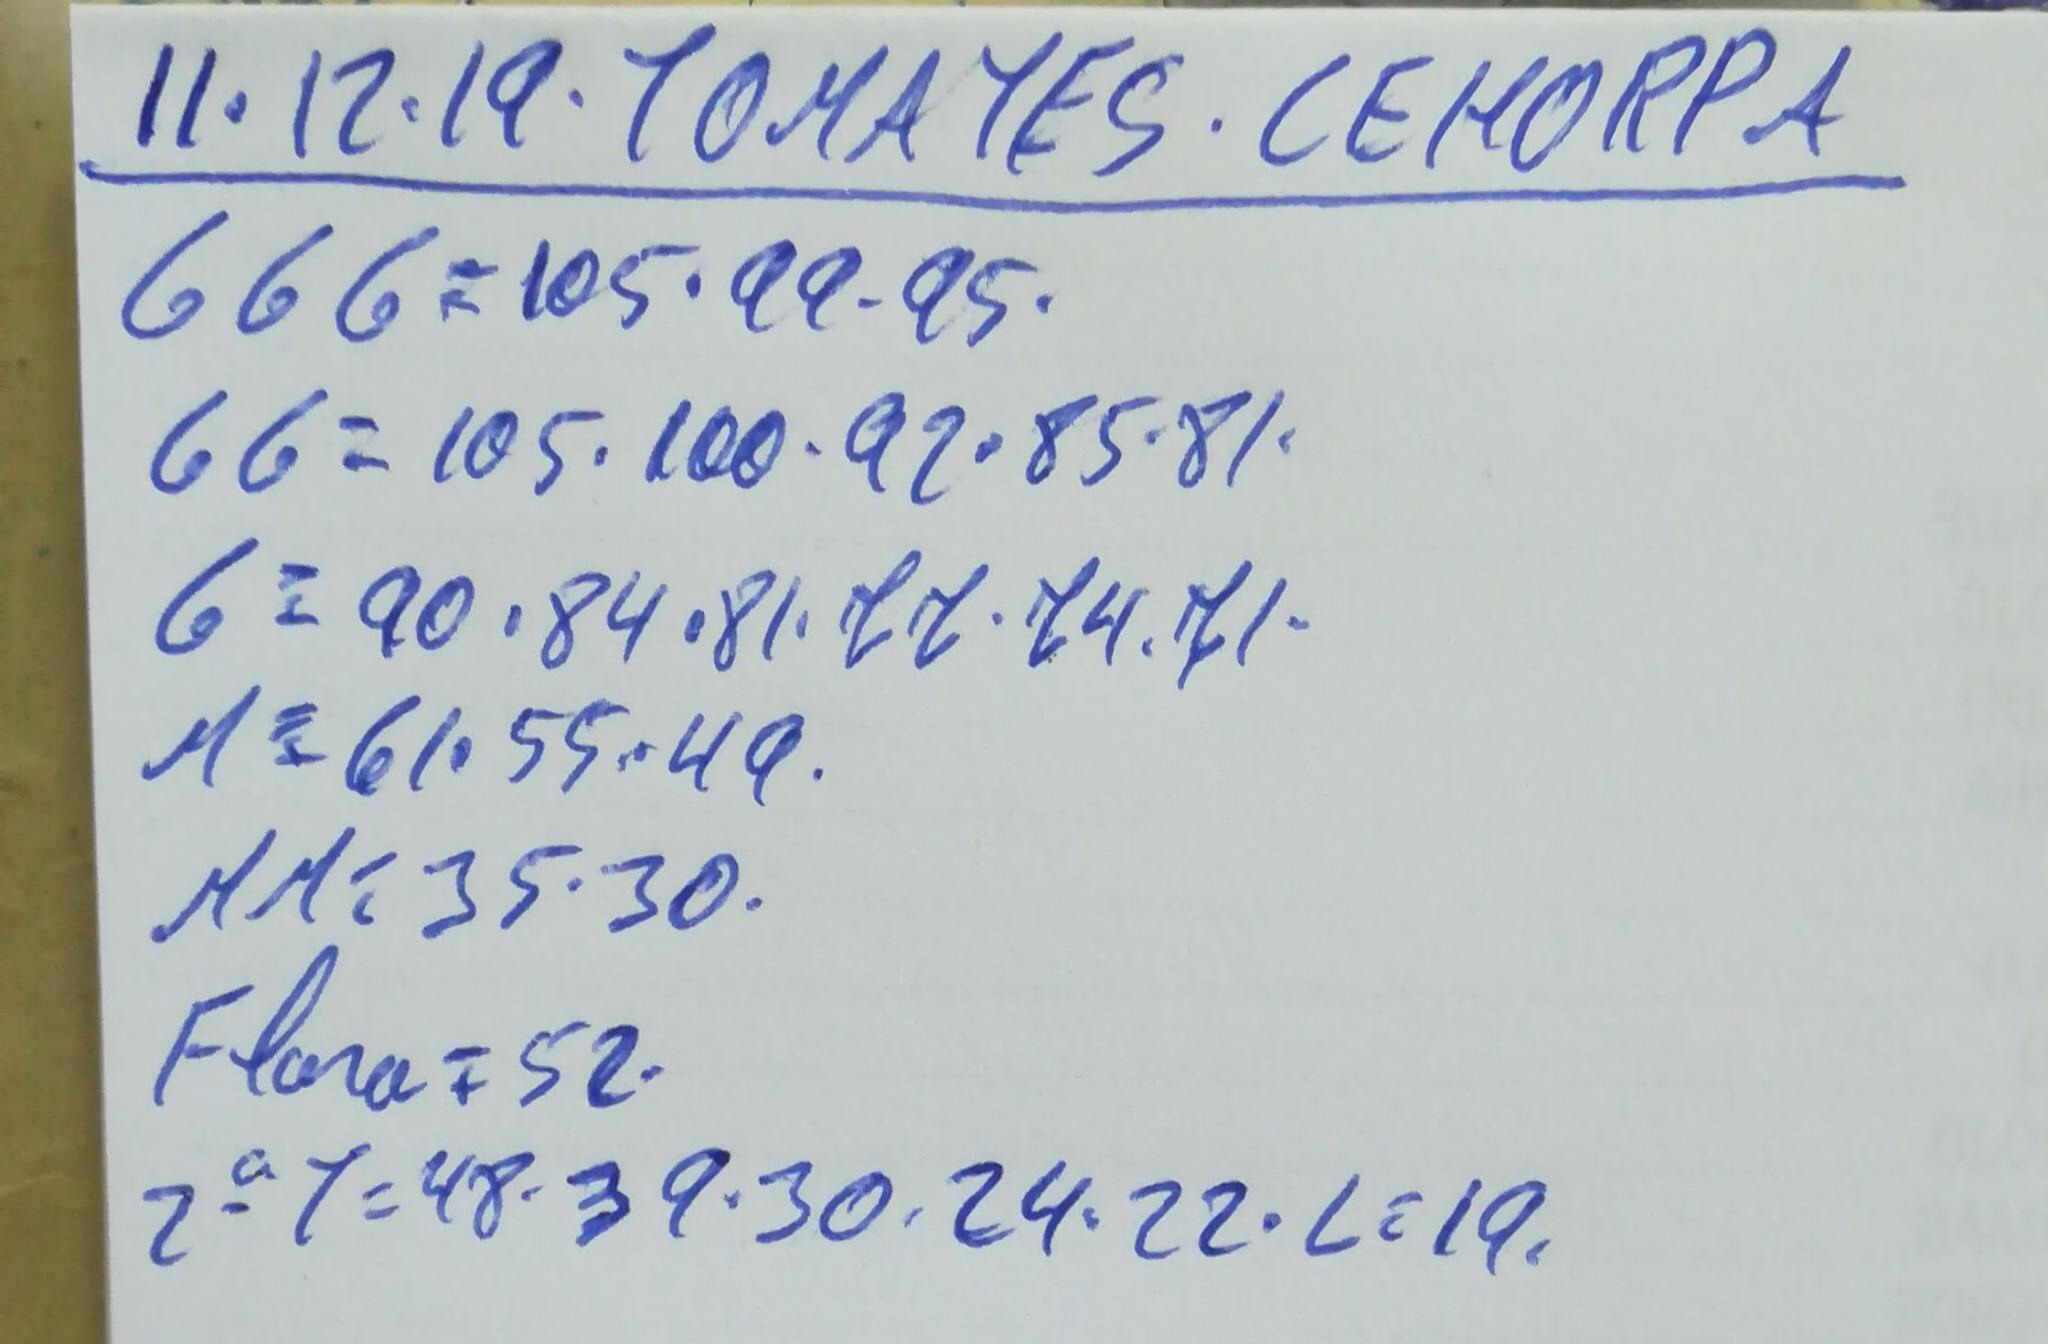 11.12.19.TOMATES.CEHORPA
GGG=105.99-95.
GG=105.100.92.85.81.
G=90.84.81.77.74.71.
M=61.55.49.
MM=35.30.
Flora=52.
2ª T=48.39.30.24.22.L=19.